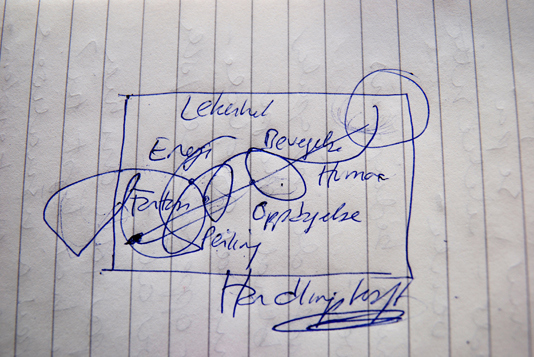 Lekenhet
Energi
Bevegelse
Humor
Fantasi
Oppdagelse
Peiling
Handlingskraft